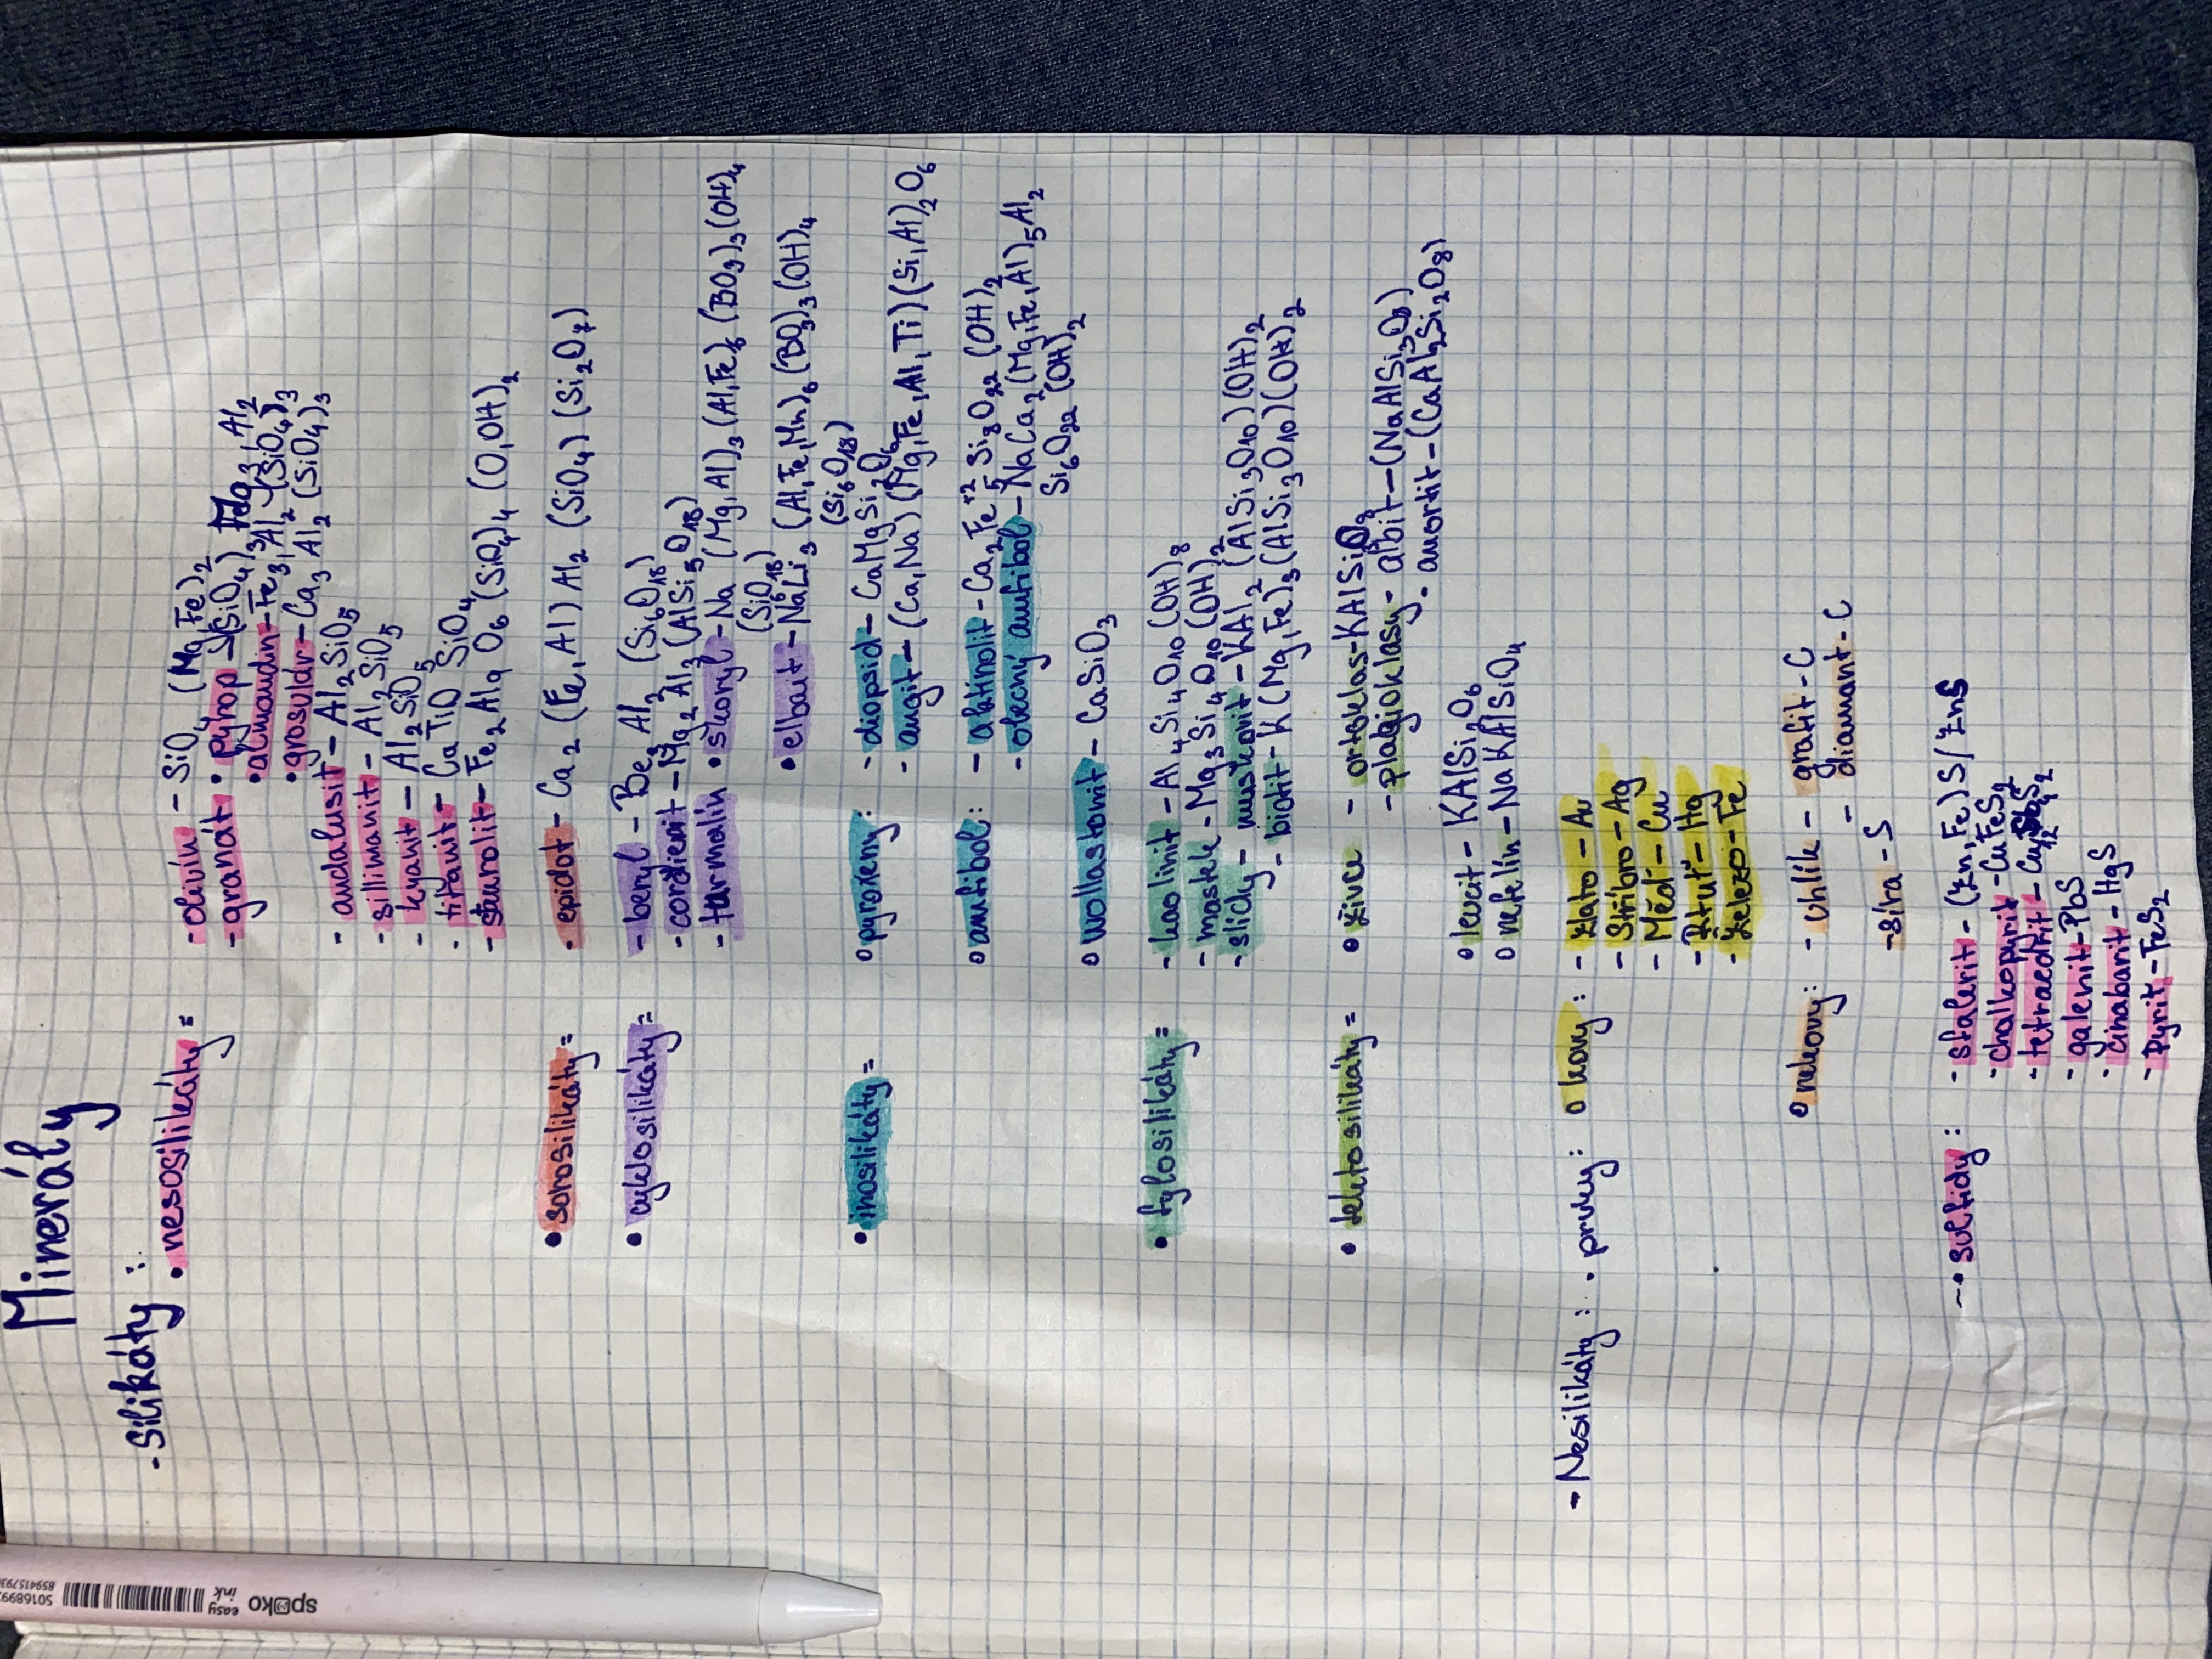 Minerály
- Silikáty :
• nesosilikáty = - olivín - SiO₄ (Mg,Fe)₂
- granát • pyrop (SiO₄)₃ Mg₃ Al₂
• almandin - Fe₃ Al₂ (SiO₄)₃
• grosulár - Ca₃ Al₂ (SiO₄)₃
- andalusit - Al₂ SiO₅
- sillimanit - Al₂ SiO₅
- kyanit - Al₂ SiO₅
- titanit - Ca TiO SiO₄
- staurolit - Fe₂ Al₉ O₆ (SiO₄)₄ (O,OH)₂
• sorosilikáty = • epidot - Ca₂ (Fe,Al) Al₂ (SiO₄) (Si₂O₇)
• cyklosilikáty = - beryl - Be₃ Al₂ (Si₆O₁₈)
- cordierit - Mg₂ Al₃ (AlSi₅O₁₈)
- turmalín • skoryl - Na (Mg,Al)₃ (Al,Fe)₆ (BO₃)₃ (OH)₄
(SiO₁₈)
• elbait - NaLi₃ (Al,Fe,Mn)₆ (BO₃)₃ (OH)₄
(Si₆O₁₈)
• inosilikáty = o pyroxeny : - diopsid - CaMgSi₂O₆
- augit - (Ca,Na) (Mg,Fe,Al,Ti) (Si,Al)₂O₆
o amfibol : - aktinolit - Ca₂Fe⁺²₅Si₈O₂₂ (OH)₂
- obecný amfibol - NaCa₂ (Mg,Fe,Al)₅Al₂
Si₆O₂₂ (OH)₂
o wollastonit - CaSiO₃
• fylosilikáty = - kaolinit - Al₄Si₄O₁₀ (OH)₈
- mastek - Mg₃Si₄O₁₀ (OH)₂
- slídy - muskovit - KAl₂ (AlSi₃O₁₀) (OH)₂
- biotit - K (Mg,Fe)₃ (AlSi₃O₁₀) (OH)₂
• tektosilikáty = • živce - ortoklas - KAlSi₃O₈
- plagioklasy - albit - (NaAlSi₃O₈)
- anortit - (CaAl₂Si₂O₈)
• leucit - KAlSi₂O₆
o nefelín - NaKAlSiO₄
- Nesilikáty : • prvky : o kovy : - Zlato - Au
- Stříbro - Ag
- Měď - Cu
- Rtuť - Hg
- Železo - Fe
o nekovy : - uhlík - grafit - C
- diamant - C
- síra - S
→ sulfidy : - sfalerit - (Zn,Fe)S / ZnS
- chalkopyrit - CuFeS₂
- tetraedrit -
- galenit - PbS
- cinabarit - HgS
- Pyrit - FeS₂
spoko
easy
ink